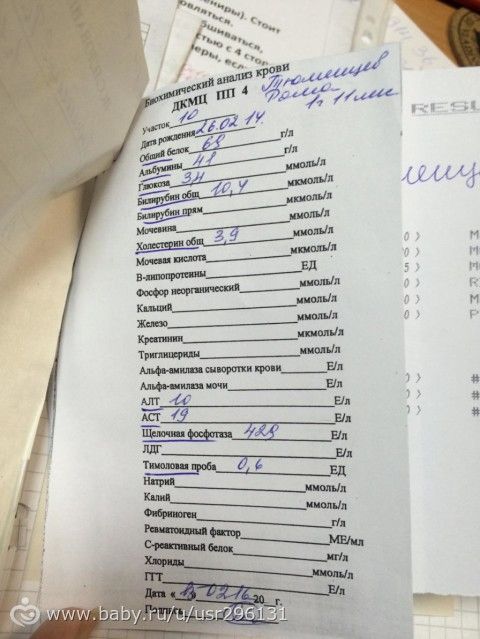 Биохимический анализ крови
ДКМЦ ПП 4
Рома
1г 11мес
Участок 10
Дата рождения 26.02.14.
Общий белок 69 г/л
Альбумины 41 г/л
Глюкоза 3,4 ммоль/л
Билирубин общ 10,4 мкмоль/л
Билирубин прям мкмоль/л
Мочевина ммоль/л
Холестерин общ 3,9 ммоль/л
Мочевая кислота мкмоль/л
В-липопротеины ЕД
Фосфор неорганический ммоль/л
Кальций ммоль/л
Железо ммоль/л
Креатинин мкмоль/л
Триглицериды ммоль/л
Альфа-амилаза сыворотки крови Е/л
Альфа-амилаза мочи Е/л
АЛТ 10 Е/л
АСТ 19 Е/л
Щелочная фосфотаза 429 Е/л
ЛДГ Е/л
Тимоловая проба 0,6 ЕД
Натрий ммоль/л
Калий ммоль/л
Фибриноген г/л
Ревматоидный фактор МЕ/мл
С-реактивный белок мг/л
Хлориды ммоль/л
ГТТ Е/л
Дата « 15 0216 20 г.
RESU
www.baby.ru/u/usr296131